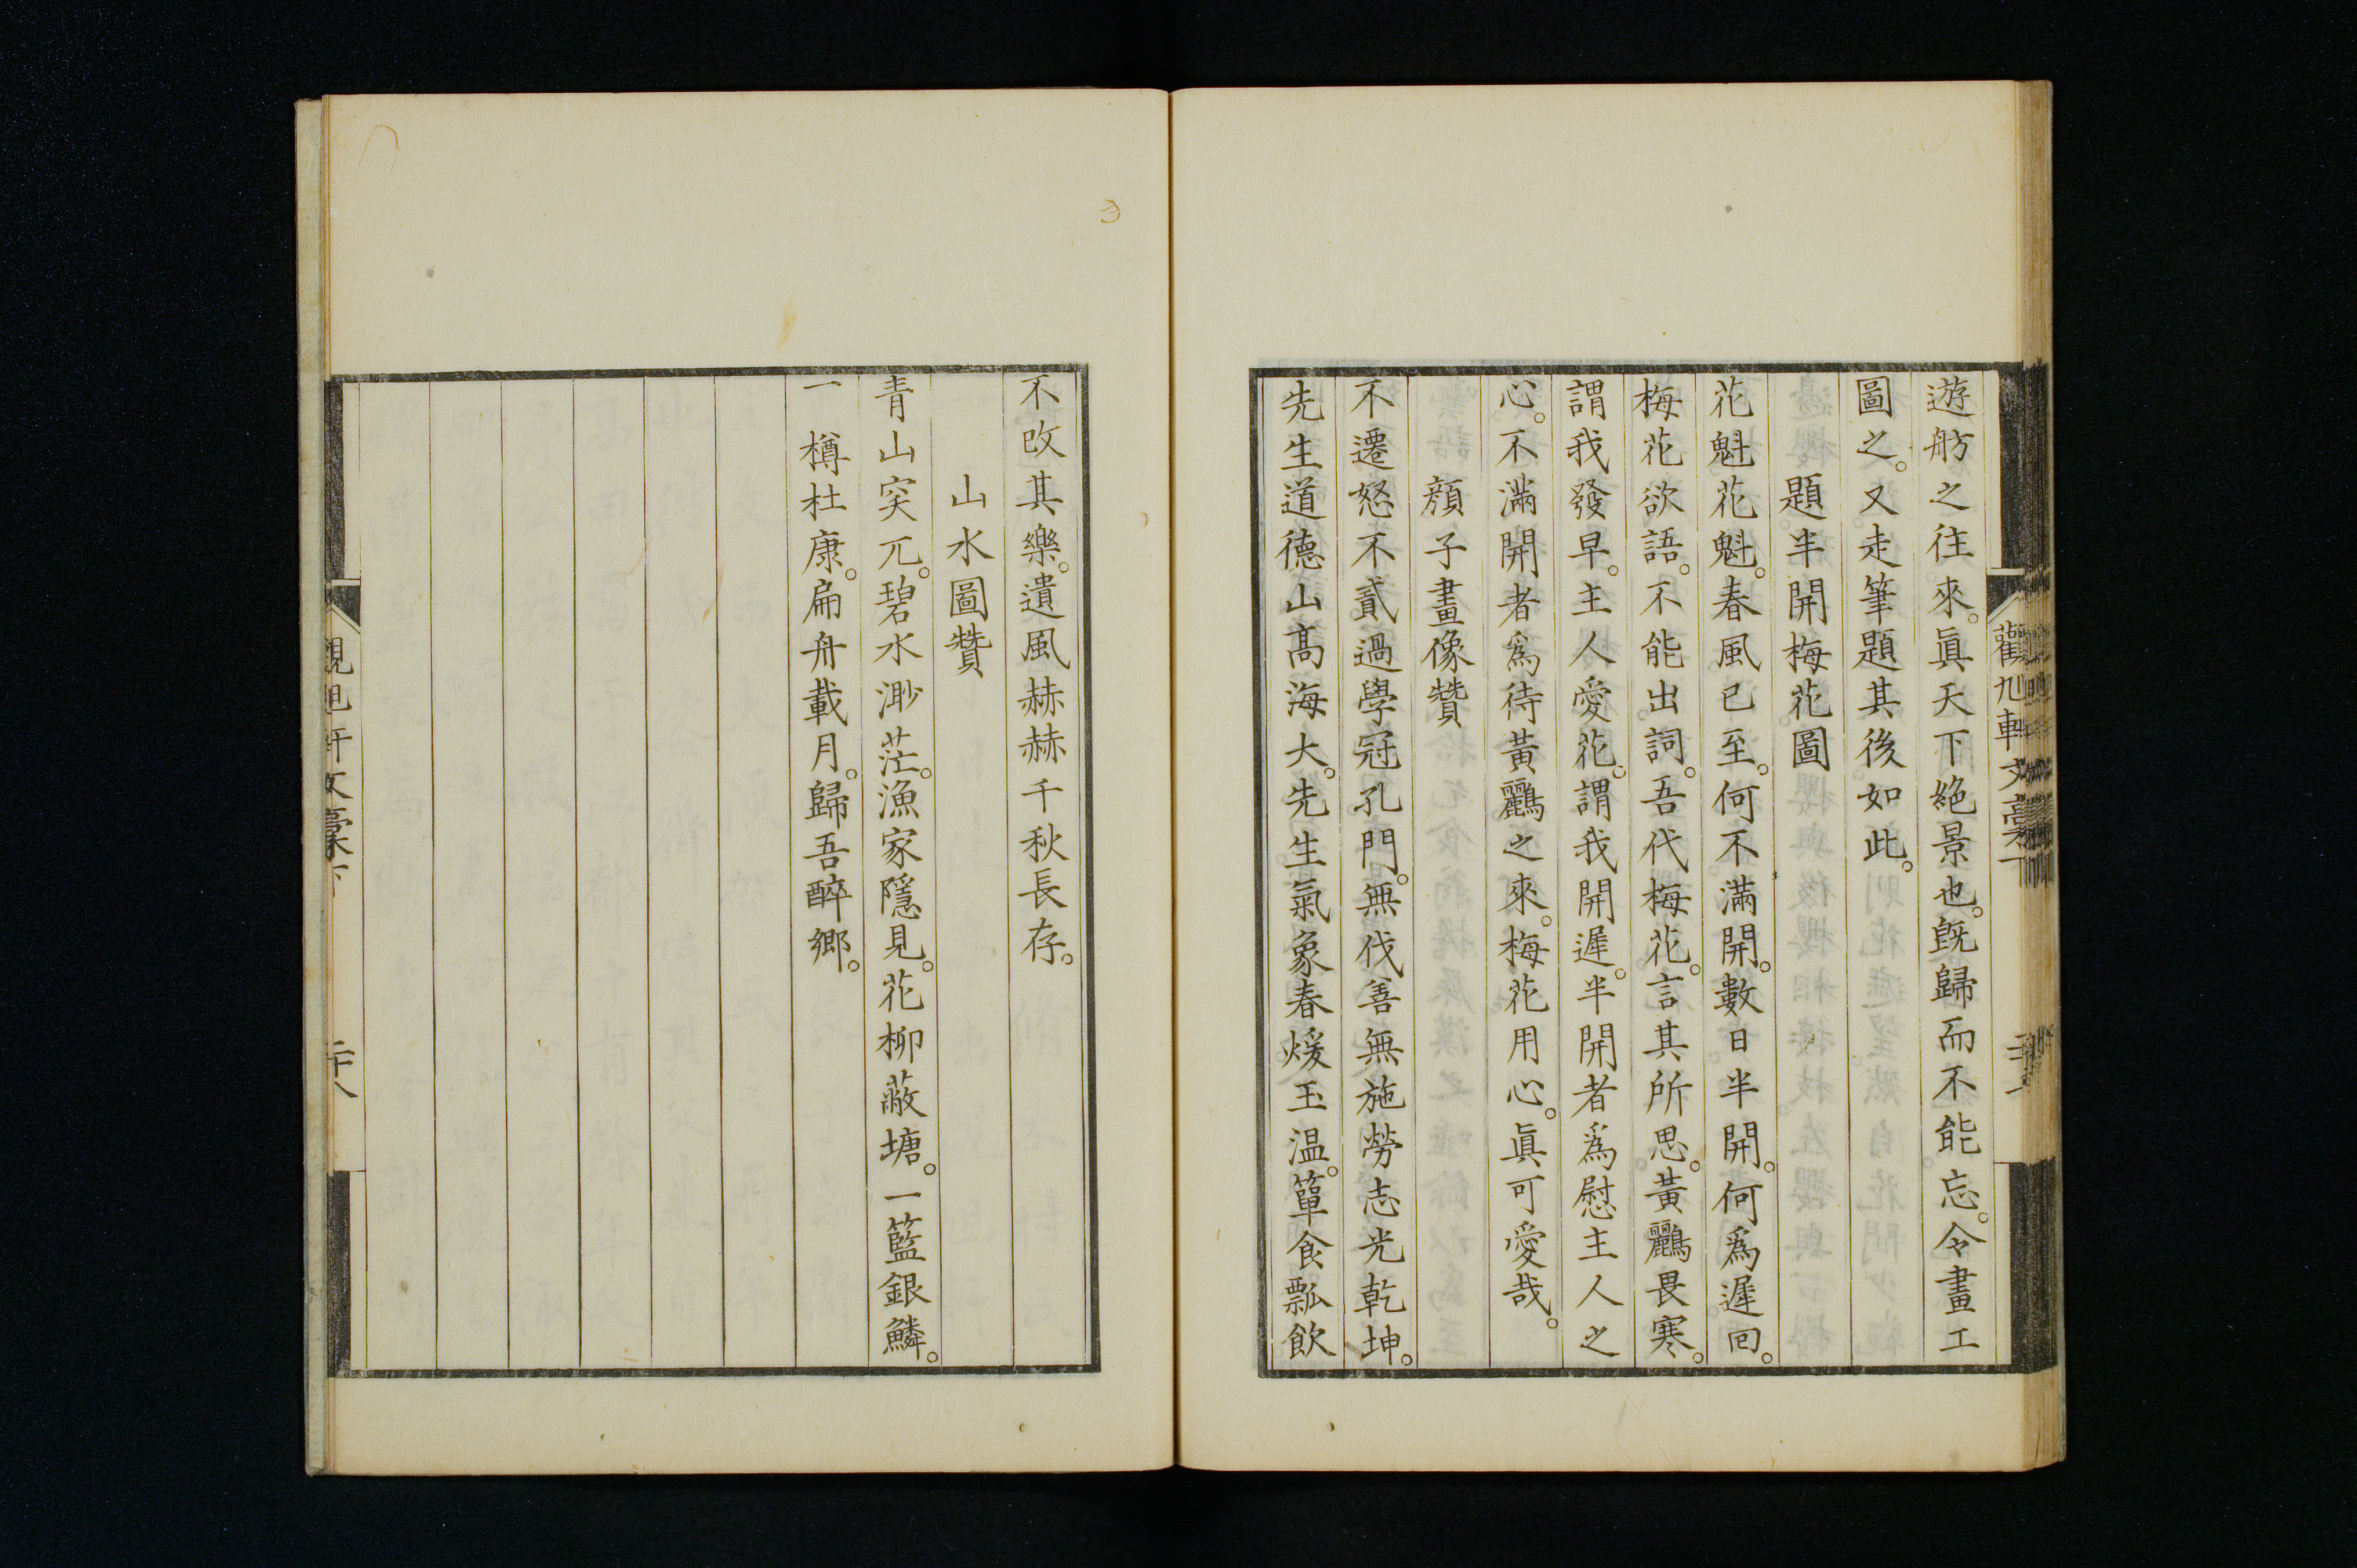 遊舫之往來。眞天下絶景也。既歸而不能忘。令畫工
圖之。又走筆題其後如此。
題半開梅花圖
花魁花魁。春風已至。何不滿開。數日半開。何爲遲回。
梅花欲語。不能出詞。吾代梅花。言其所思。黃鸝畏寒。
謂我發早。主人愛花。謂我開遲。半開者爲慰主人之
心。不滿開者爲待黃鸝之來。梅花用心。眞可愛哉。
顏子畫像贊
不遷怒不貳過學冠孔門。無伐善無施勞志光乾坤。
先生道德山高海大。先生氣象春煖玉温。簞食瓢飲
不改其樂。遺風赫赫千秋長存。
山水圖贊
青山突兀。碧水渺茫。漁家隱見。花柳蔽塘。一籃銀鱗。
一樽杜康。扁舟載月。歸吾醉鄉。
觀旭軒文稾下
二十八